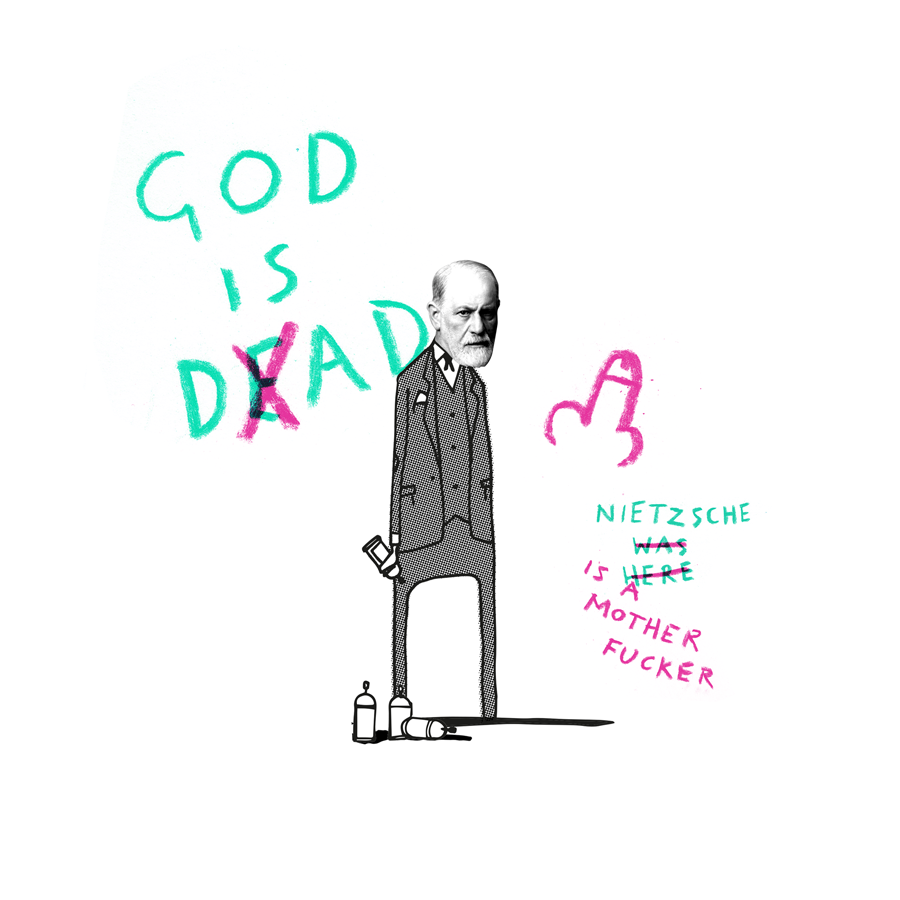 GOD
IS
DEAD
NIETZSCHE
WAS
IS HERE
A
MOTHER
FUCKER